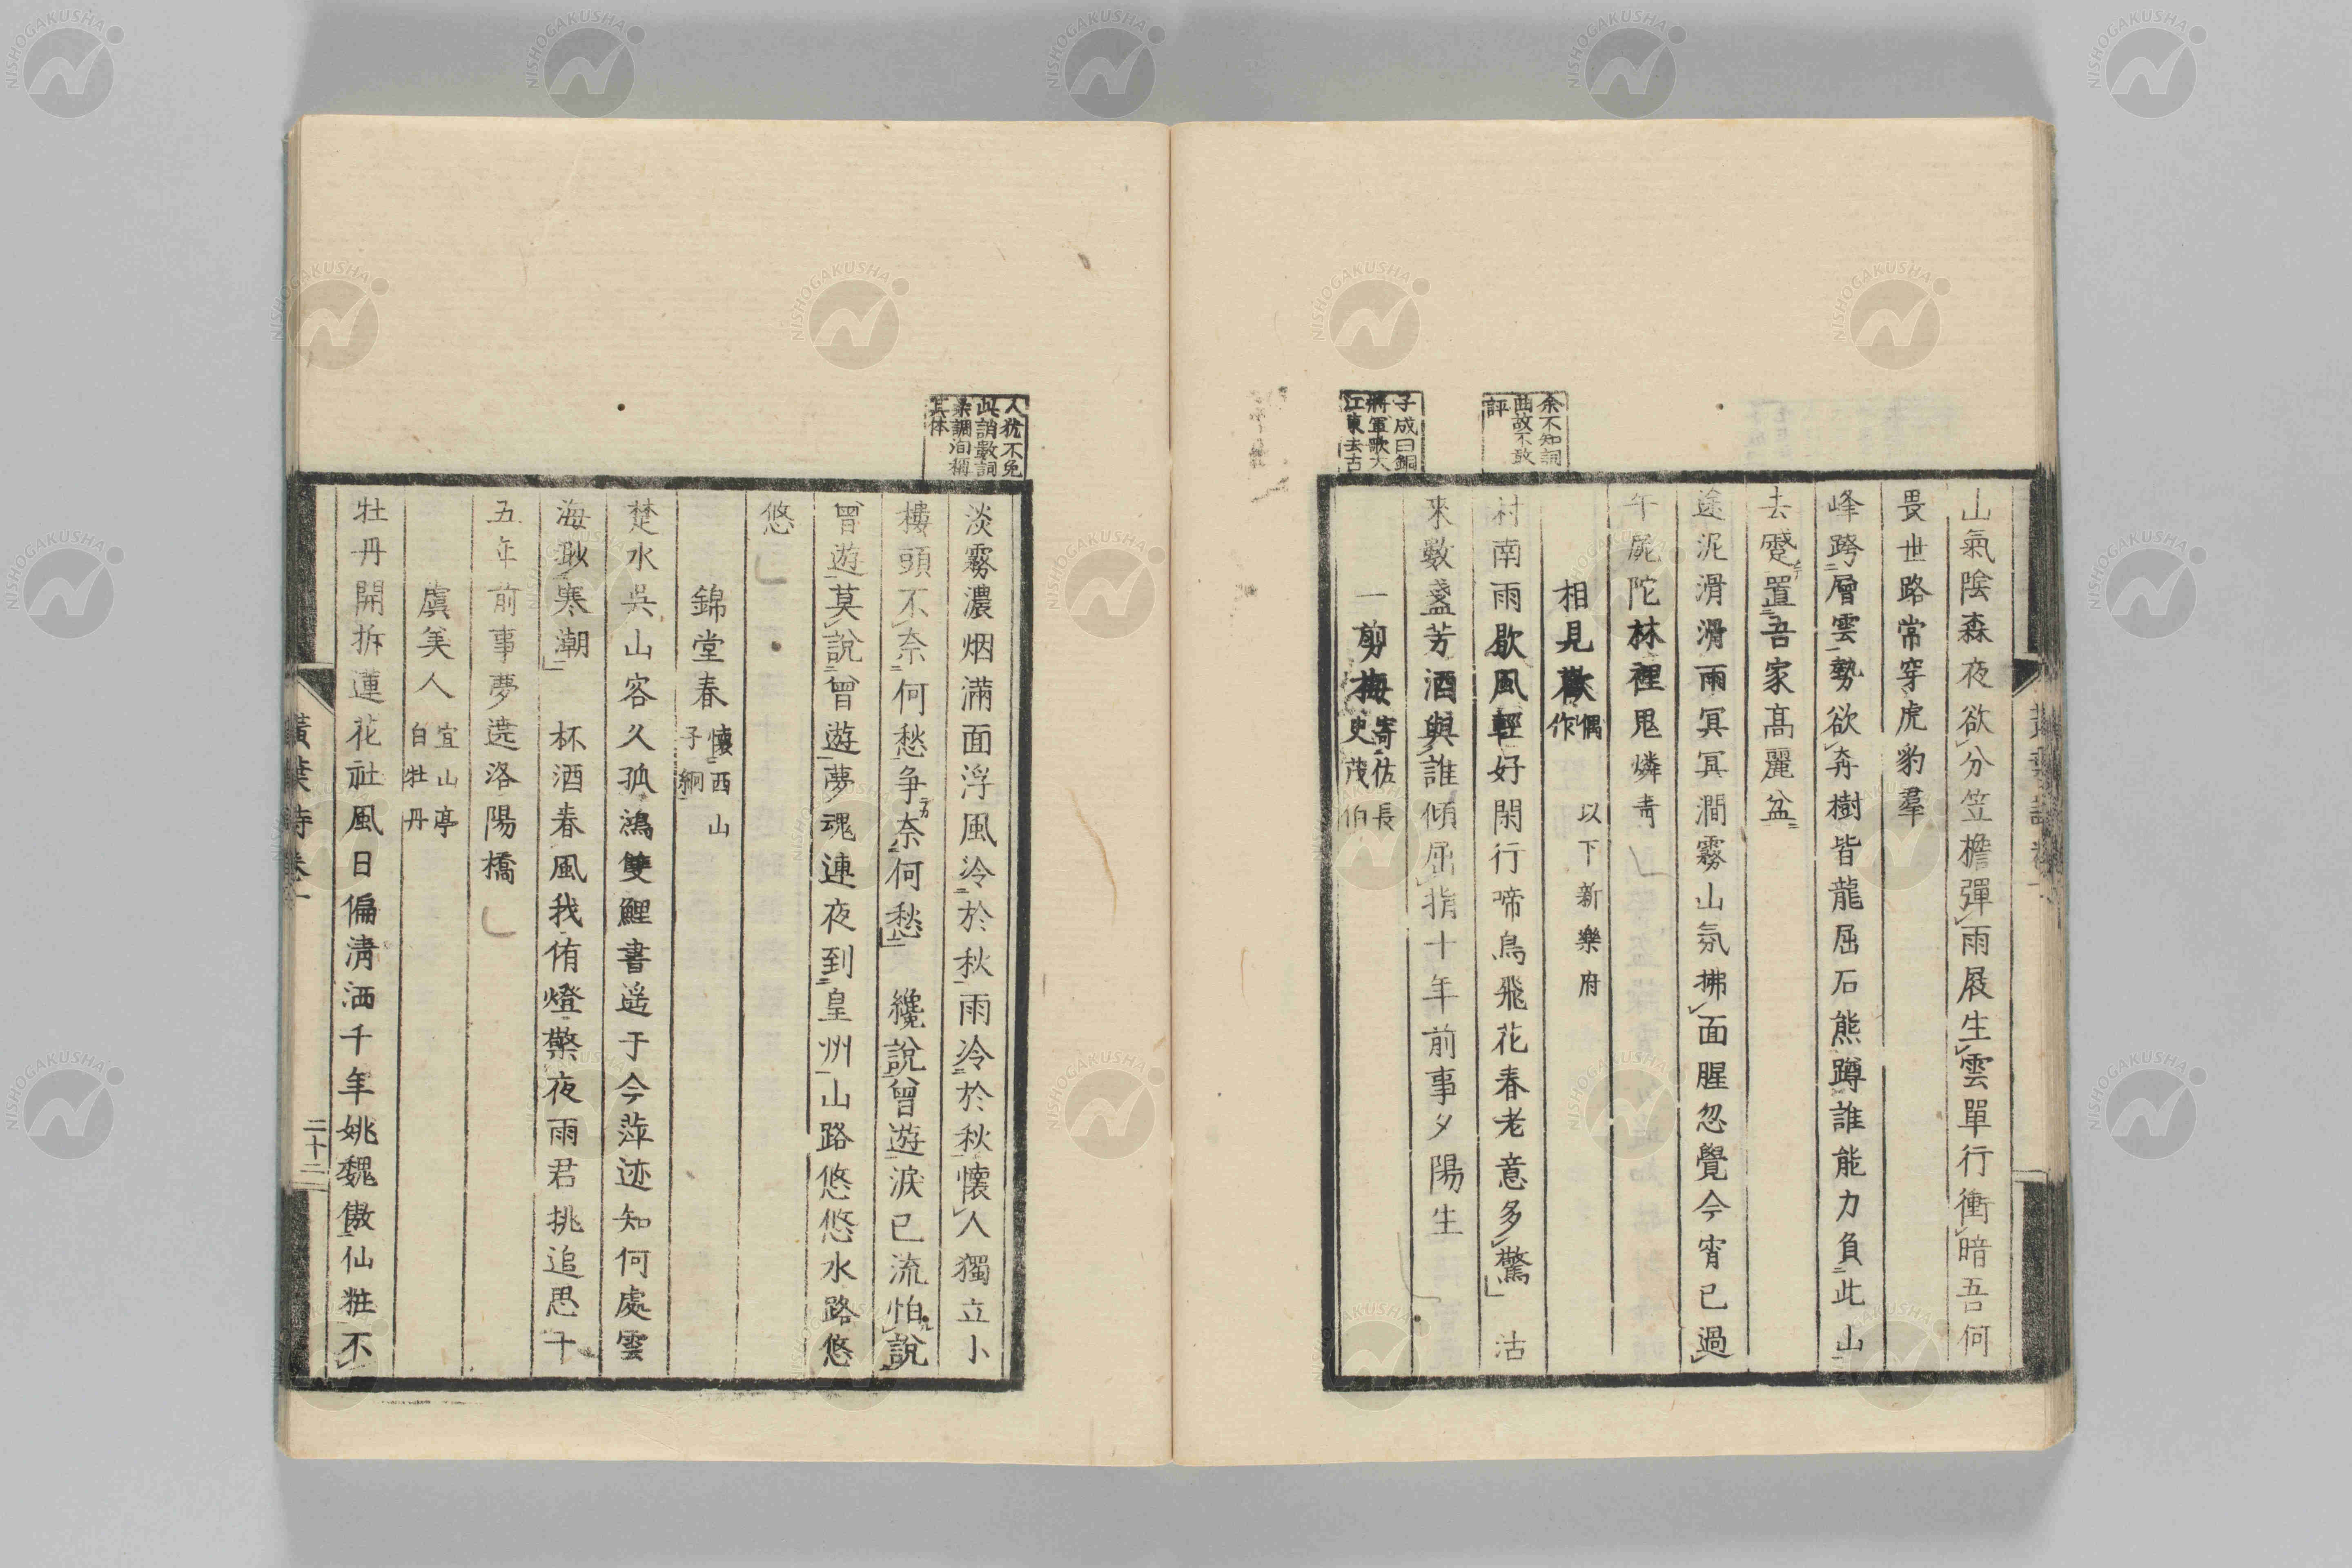 山氣陰森夜欲分笠檐彈雨屐生雲單行衝暗吾何
畏世路常穿虎豹羣
峰跨層雲勢欲奔樹皆龍屈石熊蹲誰能力負此山
去蹙置吾家高麗盆
途泥滑滑雨冥冥澗霧山氛拂面腥忽覺今宵已過
午屍陀林裡鬼燐青
相見歡 偶作 以下新樂府
村南雨歇風輕好閑行啼鳥飛花春老意多驚 沽
來數盞芳酒與誰傾屈指十年前事夕陽生
一剪梅 寄佐長史茂伯
余不知詞
曲故不敢
評
子成曰銅
將軍歌大
江東去古
淡霧濃烟滿面浮風冷於秋雨冷於秋懷人獨立小
樓頭不奈何愁爭奈何愁 纔說曾遊淚已流怕說
曾遊莫說曾遊夢魂連夜到皇州山路悠悠水路悠
悠
錦堂春 懷西山子絅
楚水吳山客久孤鴻雙鯉書遥于今萍迹知何處雲
海渺寒潮 杯酒春風我侑燈檠夜雨君挑追思十
五年前事夢遶洛陽橋
虞美人 宜山亭白牡丹
牡丹開拆蓮花社風日偏清洒千年姚魏傲仙粧不
人犹不免
此誚數詞
柔調洵稱
其体
黃葉詩卷一
二十二
NISHOGAKUSHA